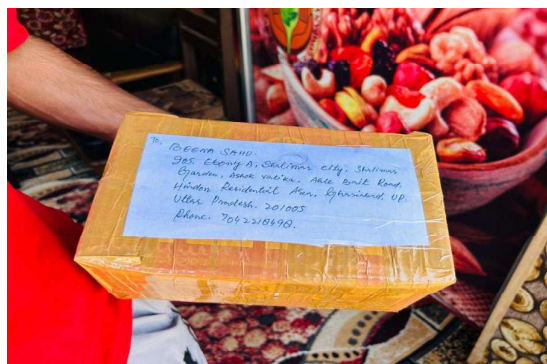 To,
BEENA SAHU.
905 Ebony A, Shalimar City, Shalimar
Garden, Ashok Vatika, Able Brit Road,
Hindon Residential Area, Ghaziabad, UP.
Uttar Pradesh. 201005
Phone. 7042218498.